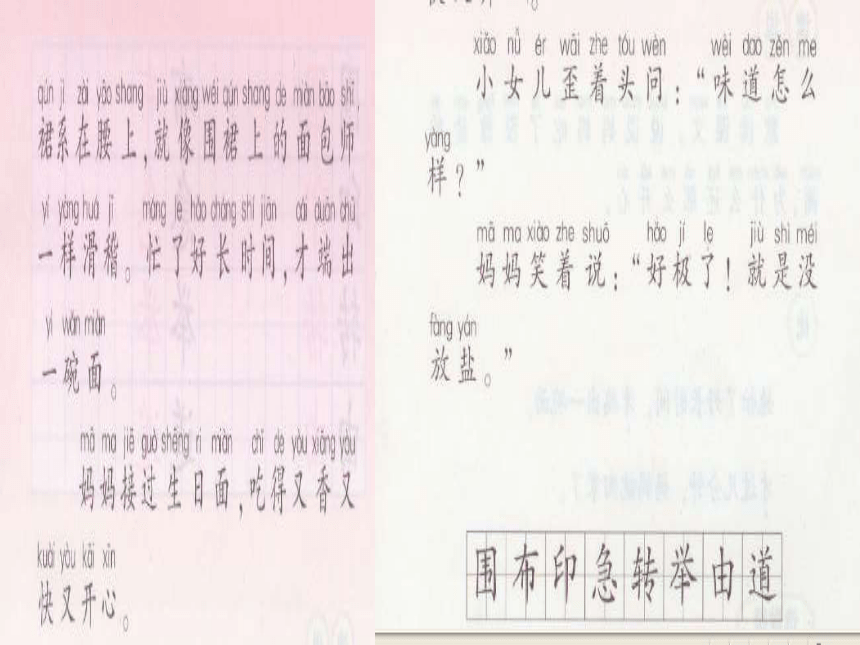 qún jì zài yāo shang jiù xiàng wéi qún shang de miàn bāo shī
裙系在腰上，就像围裙上的面包师
yí yàng huá jī máng le hǎo cháng shí jiān cái duān chū
一样滑稽。忙了好长时间，才端出
yì wǎn miàn
一碗面。
mā ma jiē guò shēng rì miàn chī de yòu xiāng yòu
妈妈接过生日面，吃得又香又
kuài yòu kāi xīn
快又开心。
xiǎo nǚ ér wāi zhe tóu wèn wèi dao zěn me
小女儿歪着头问：“味道怎么
yàng
样？”
mā ma xiào zhe shuō hǎo jí le jiù shì méi
妈妈笑着说：“好极了！就是没
fàng yán
放盐。”
围布印急转举由道